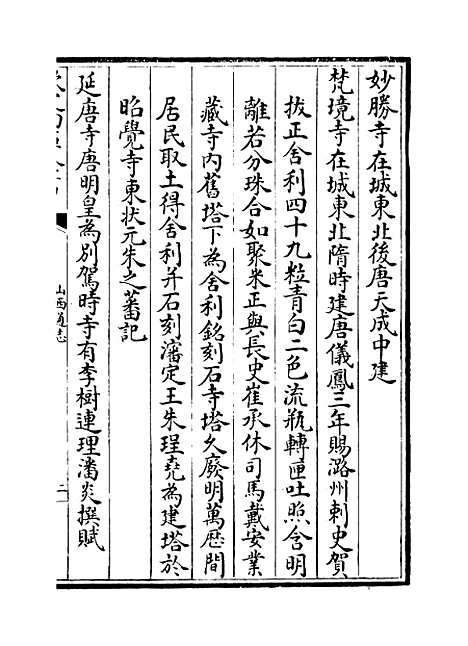 妙勝寺在城東北後唐天成中建
梵境寺在城東北隋時建唐儀鳳三年賜潞州刺史賀
拔正舍利四十九粒青白二色流瓶轉匣吐照含明
離若分珠合如聚米正與長史崔承休司馬戴安業
藏寺內舊塔下為舍利銘刻石寺塔久廢明萬厯間
居民取土得舍利并石刻瀋定王朱珵堯為建塔於
昭覺寺東狀元朱之蕃記
延唐寺唐明皇為別駕時寺有李樹連理潘炎撰賦
山西通志